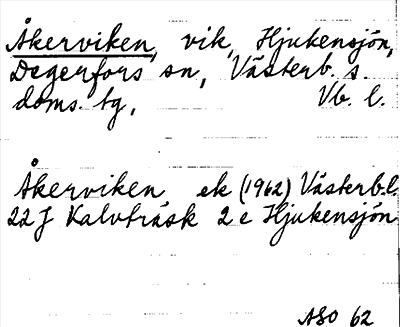 Åkerviken, vik, Hjukensjön,
Degerfors sn, Västerb. s.
doms. tg, Vb. l.
Åkerviken ek (1962) Västerb.l.
22 J Kalvträsk 2 e Hjukensjön
ASO 62